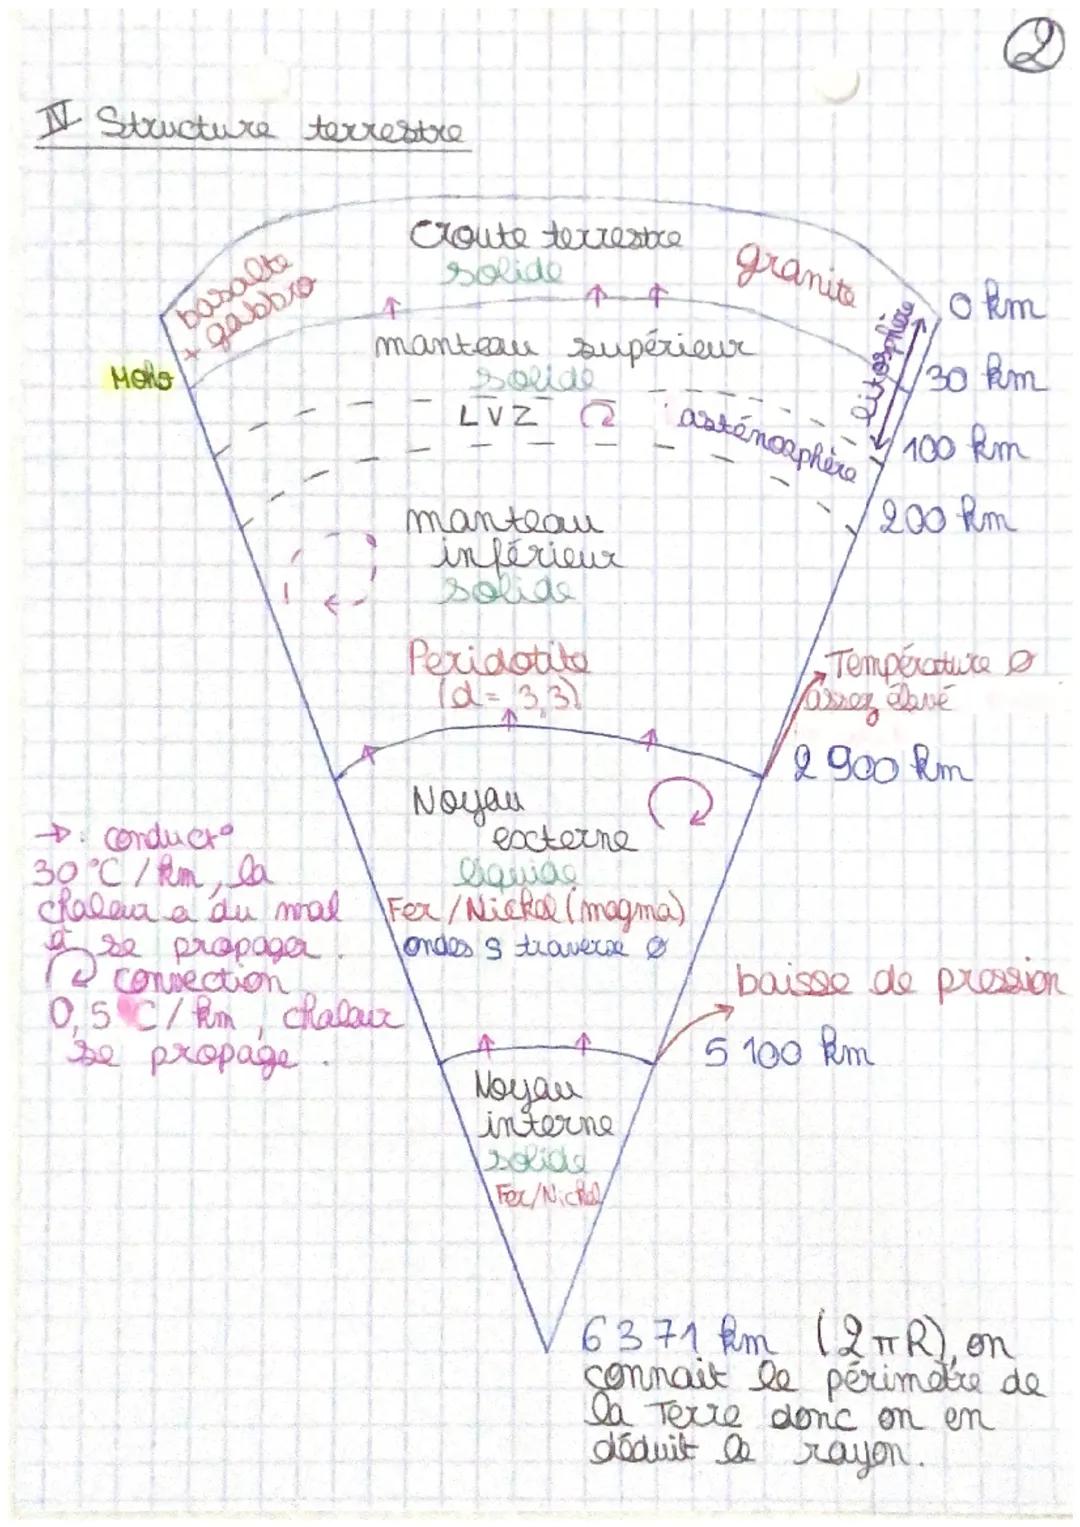 2
IV Structure terrestre
Croute terrestre
solide
basalte
+ gabbro
granite
0 km
manteau supérieur
solide
Moho
litosphère
30 km
LVZ
asténosphère
100 km
200 km
manteau
inférieur
solide
Peridotite
(d = 3,3)
Température Ø
assez élevé
2 900 km
Noyau
externe
liquide
Fer/Nickel (magma)
ondes S traverse Ø
→ : conduct°
30°C/km, la
chaleur a du mal
à se propager.
convection
0,5°C/km, chaleur
se propage.
baisse de pression
5 100 km
Noyau
interne
solide
Fer/Nickel
6371 km (2πR), on
connait le périmètre de
la Terre donc on en
déduit le rayon.